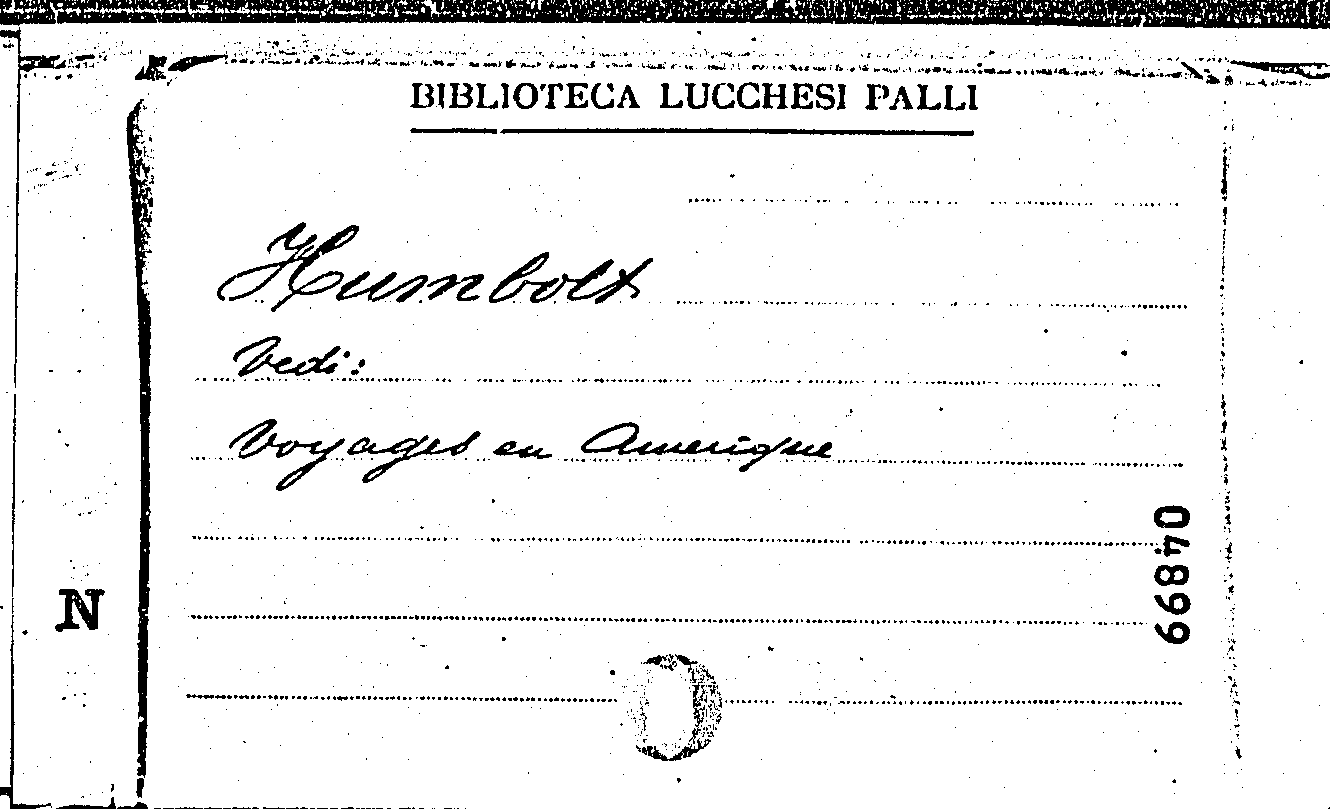 BIBLIOTECA LUCCHESI PALLI
Humbolt
Vedi:
Voyages en Amerique
04899
N